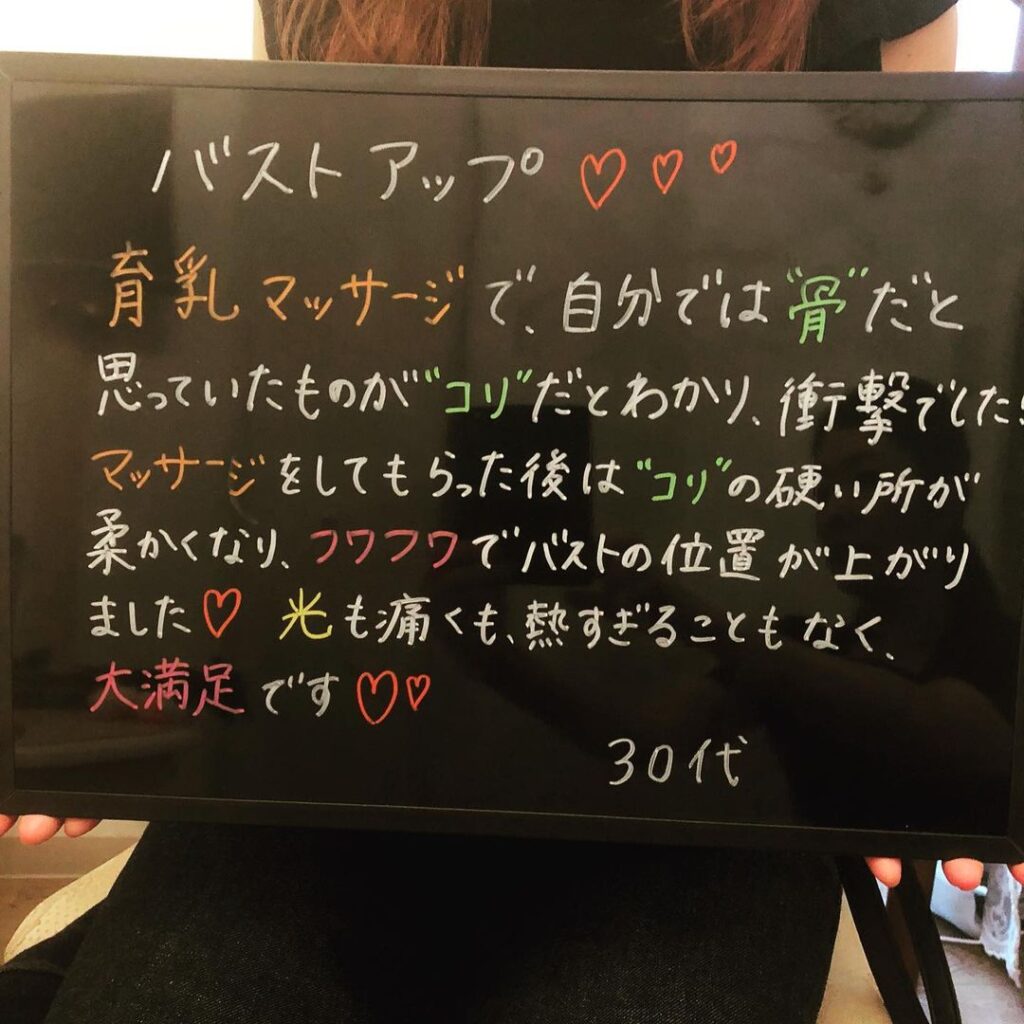 バストアップ♡♡♡
育乳マッサージで、自分では"骨"だと
思っていたものが"コリ"だとわかり、衝撃でした!
マッサージをしてもらった後は"コリ"の硬い所が
柔かくなり、フワフワでバストの位置が上がり
ました♡ 光も痛くも、熱すぎることもなく、
大満足です♡♡
30代